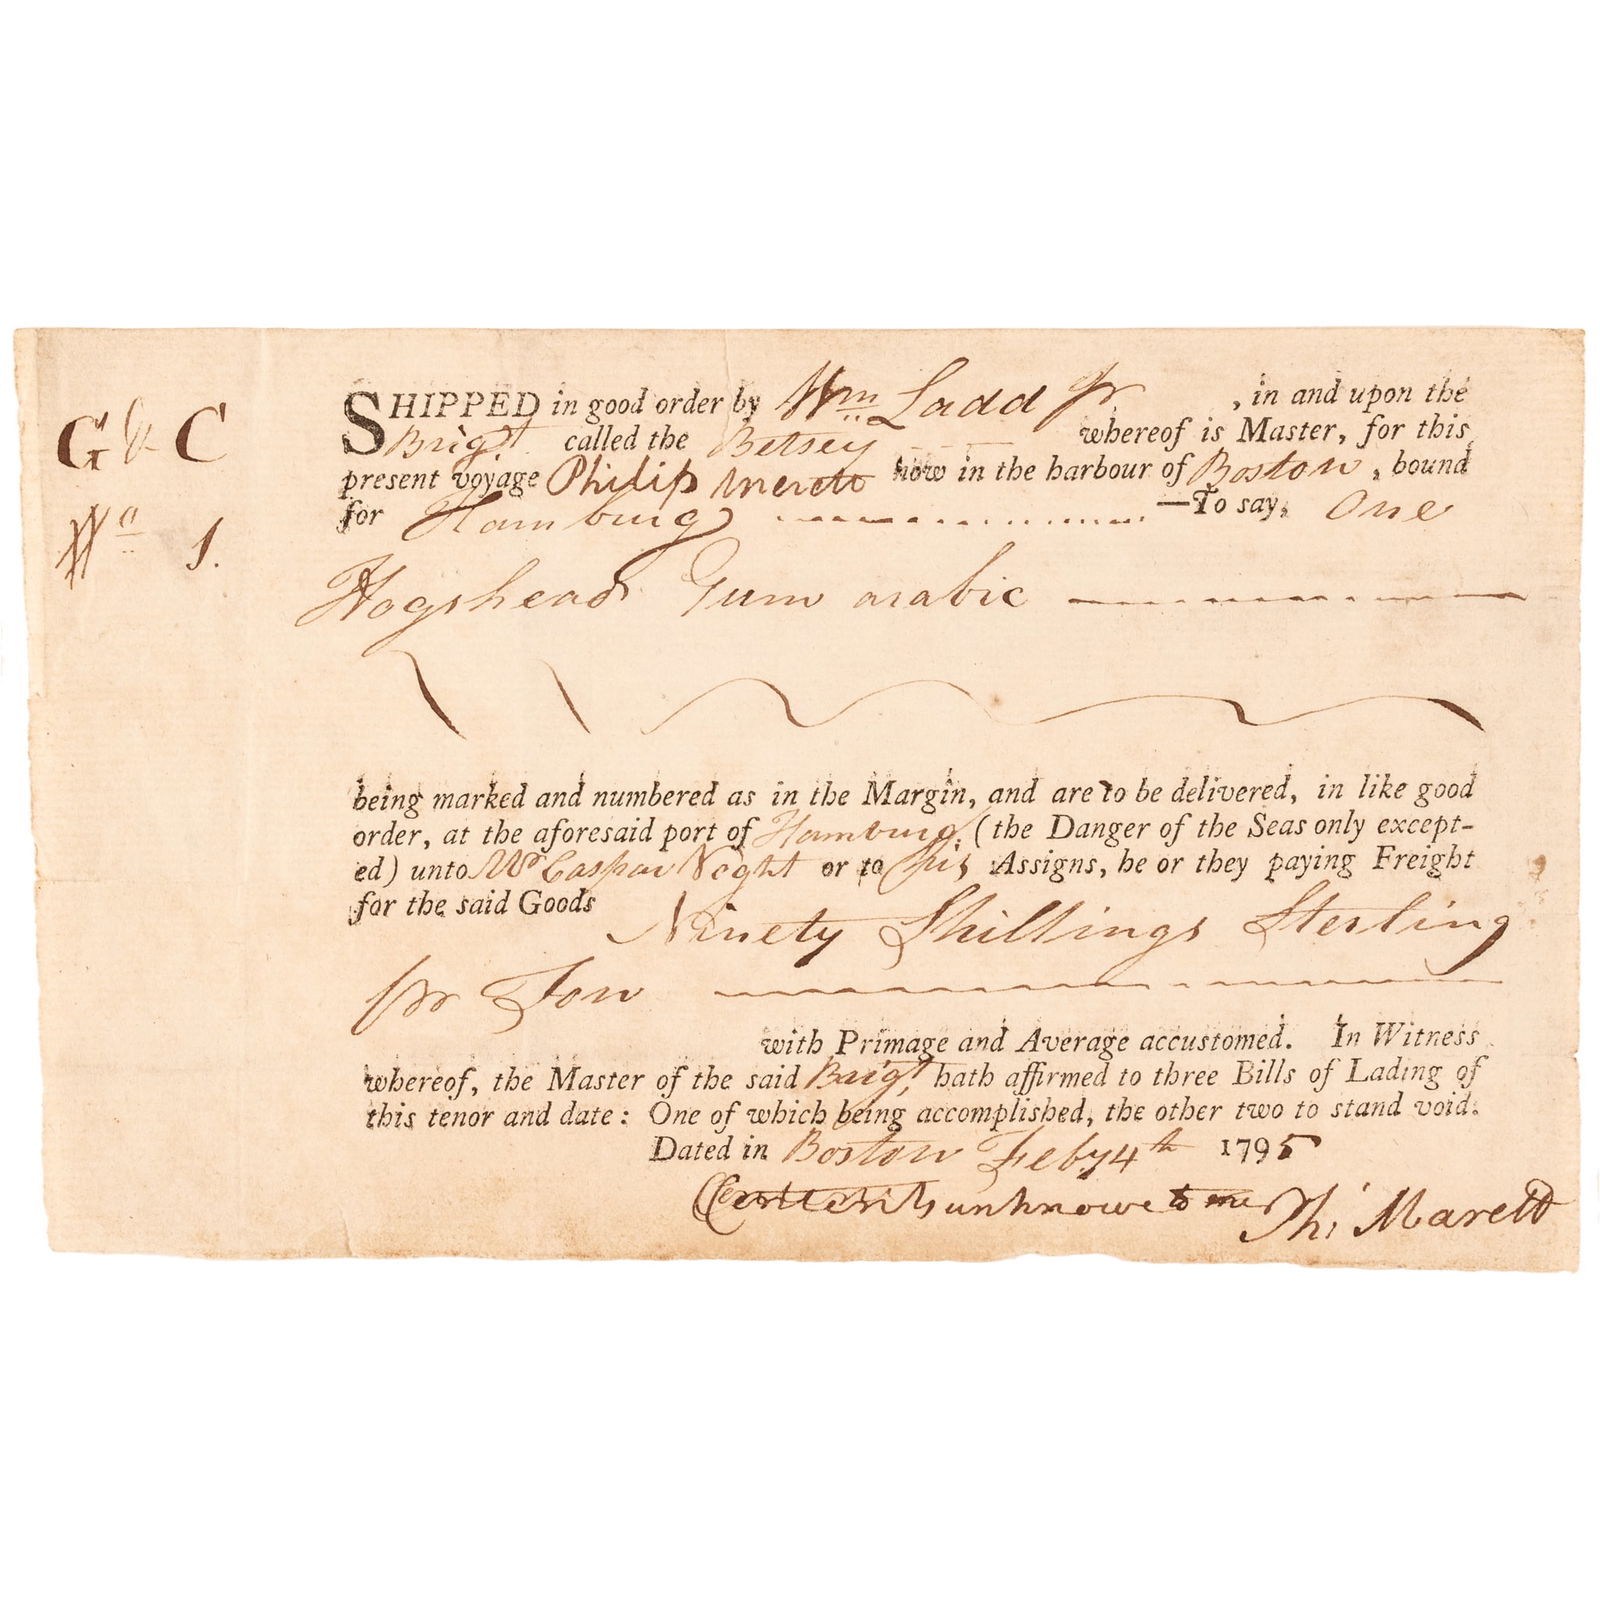 G & C
No 1.
SHIPPED in good order by Wm Ladd Jr , in and upon the
Brigt called the Betsey whereof is Master, for this
present voyage Philip Merett now in the harbour of Boston , bound
for Hamburg —To say, One
Hogshead Gum arabic
being marked and numbered as in the Margin, and are to be delivered, in like good
order, at the aforesaid port of Hamburg, (the Danger of the Seas only except-
ed) unto Mr Caspar Voght or to his Assigns, he or they paying Freight
for the said Goods
Ninety Shillings Sterling
pr Ton
with Primage and Average accustomed. In Witness
whereof, the Master of the said Brigt, hath affirmed to three Bills of Lading of
this tenor and date: One of which being accomplished, the other two to stand void.
Dated in Boston Feby 4th 1795
Contents unknowe to me Phi Marett